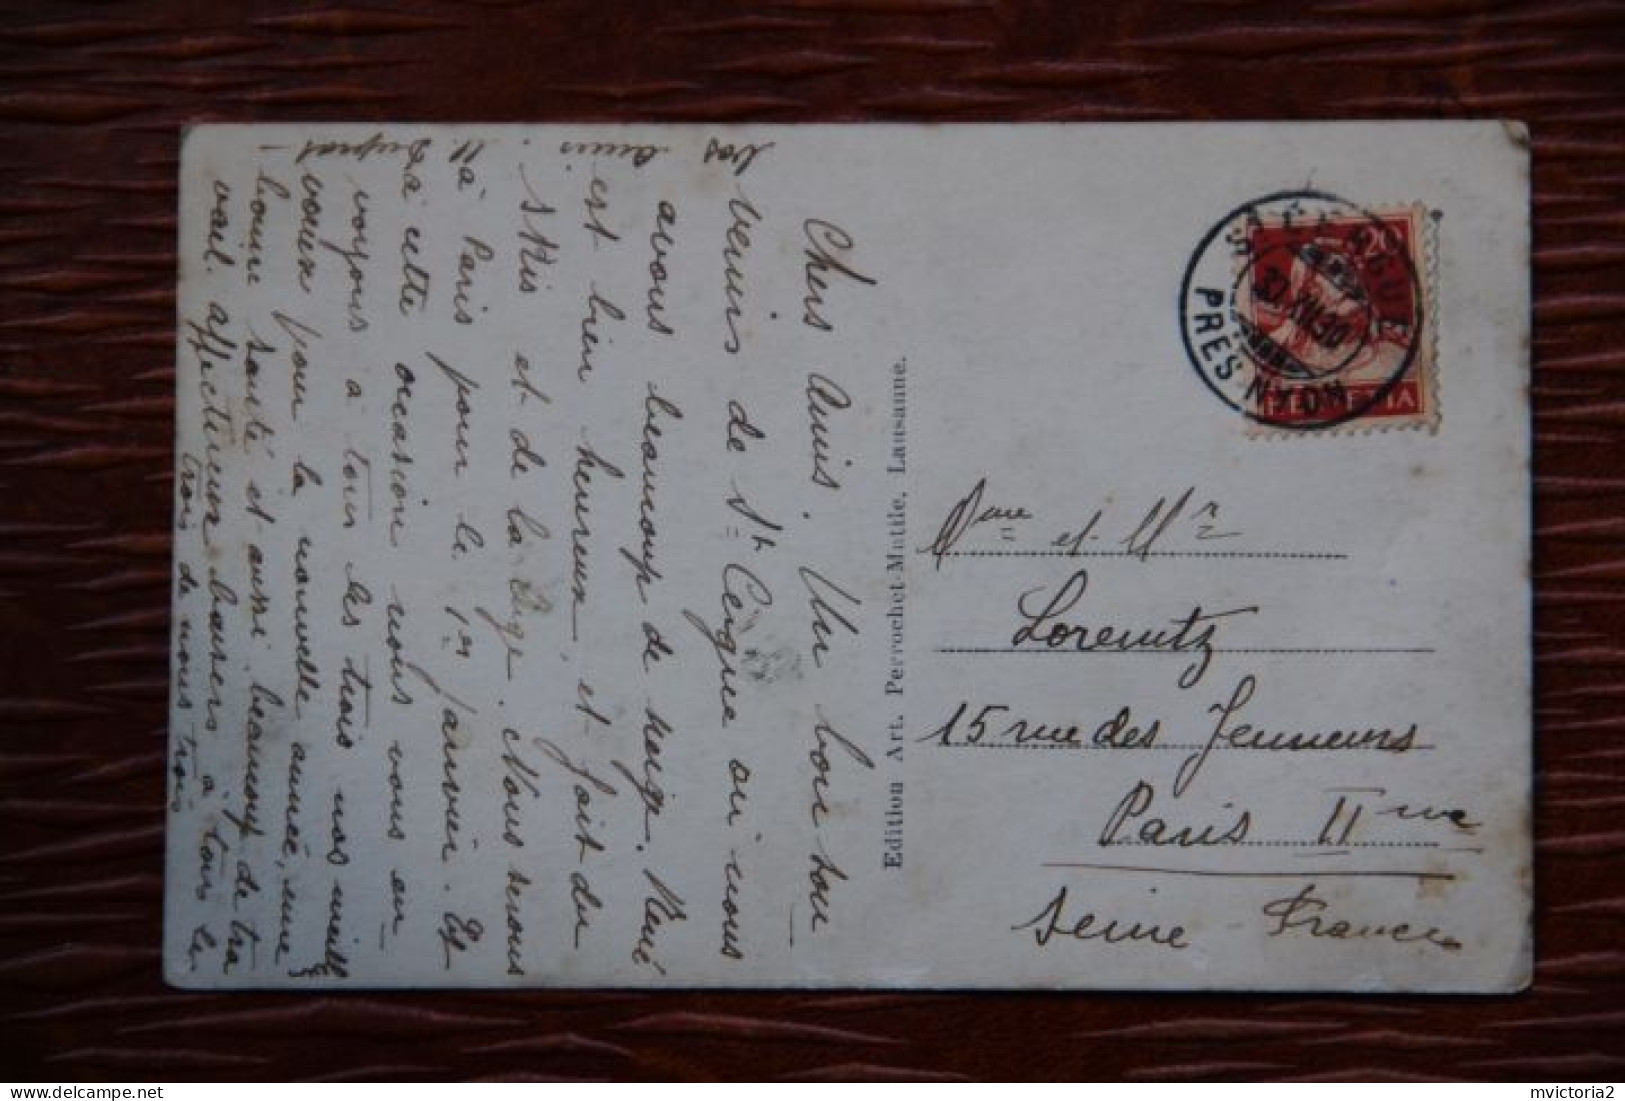 Chers Amis. Un bon sou
venir de St Cergue où nous
avons beaucoup de neige. René
est bien heureux, et fait du
skis et de la luge. Nous serons
à Paris pour le 1er janvier. Et
à cette occasion nous vous en
voyons à tous les trois nos meill
voeux pour la nouvelle année, une
bonne santé et aussi beaucoup de tra
vail. affectueux baisers à tous les
trois de nous trois
Vos
amis
Duprat
Edition Art. Perrochet-Matile, Lausanne.
Dme et Mr
Lorentz
15 rue des Jeuneurs
Paris IIme
Seine France
ST CERGUE
PRES NYON
30 XII
20
HELVETIA
mvictoria2